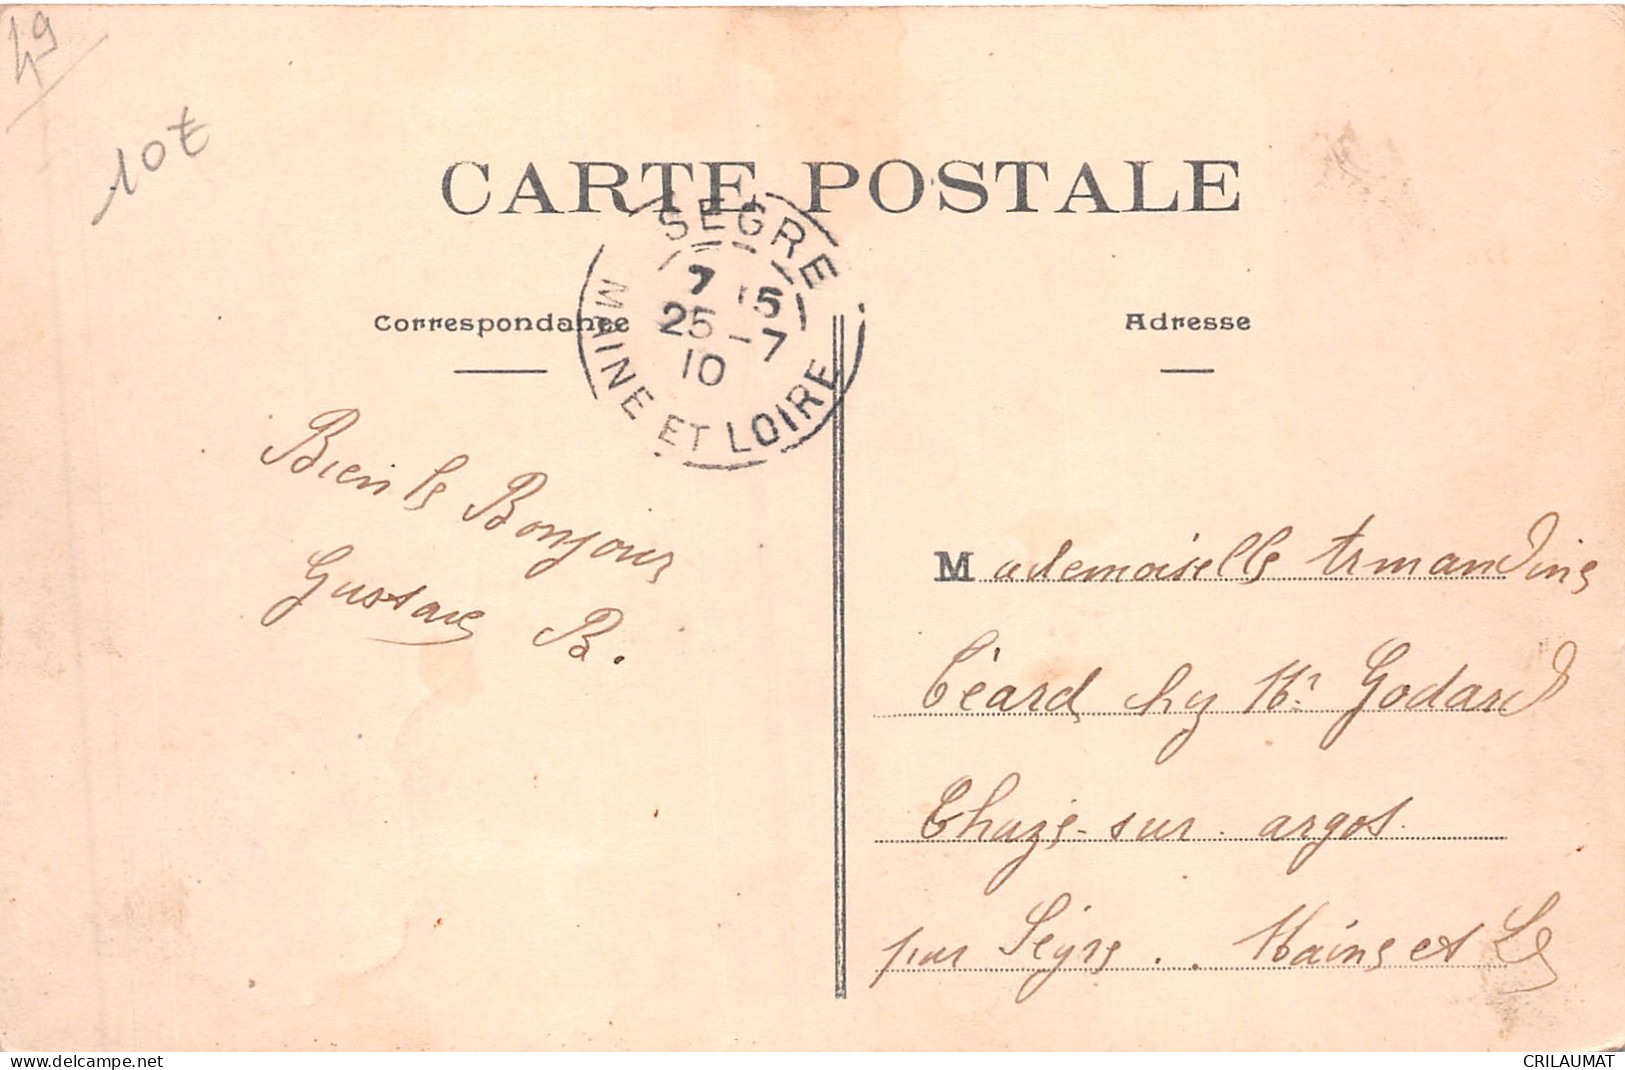 49
10€
CARTE POSTALE
SEGRE
7 15
25 - 7
10
MAINE ET LOIRE
Correspondance
Adresse
Bien le Bonjour
Gustave B.
Mademoiselle Armandine
Céard chez Mr Godard
Chazé-sur-argos
par Ségré .. Maine et Le
https://www.delcampe.net
CRILAUMAT